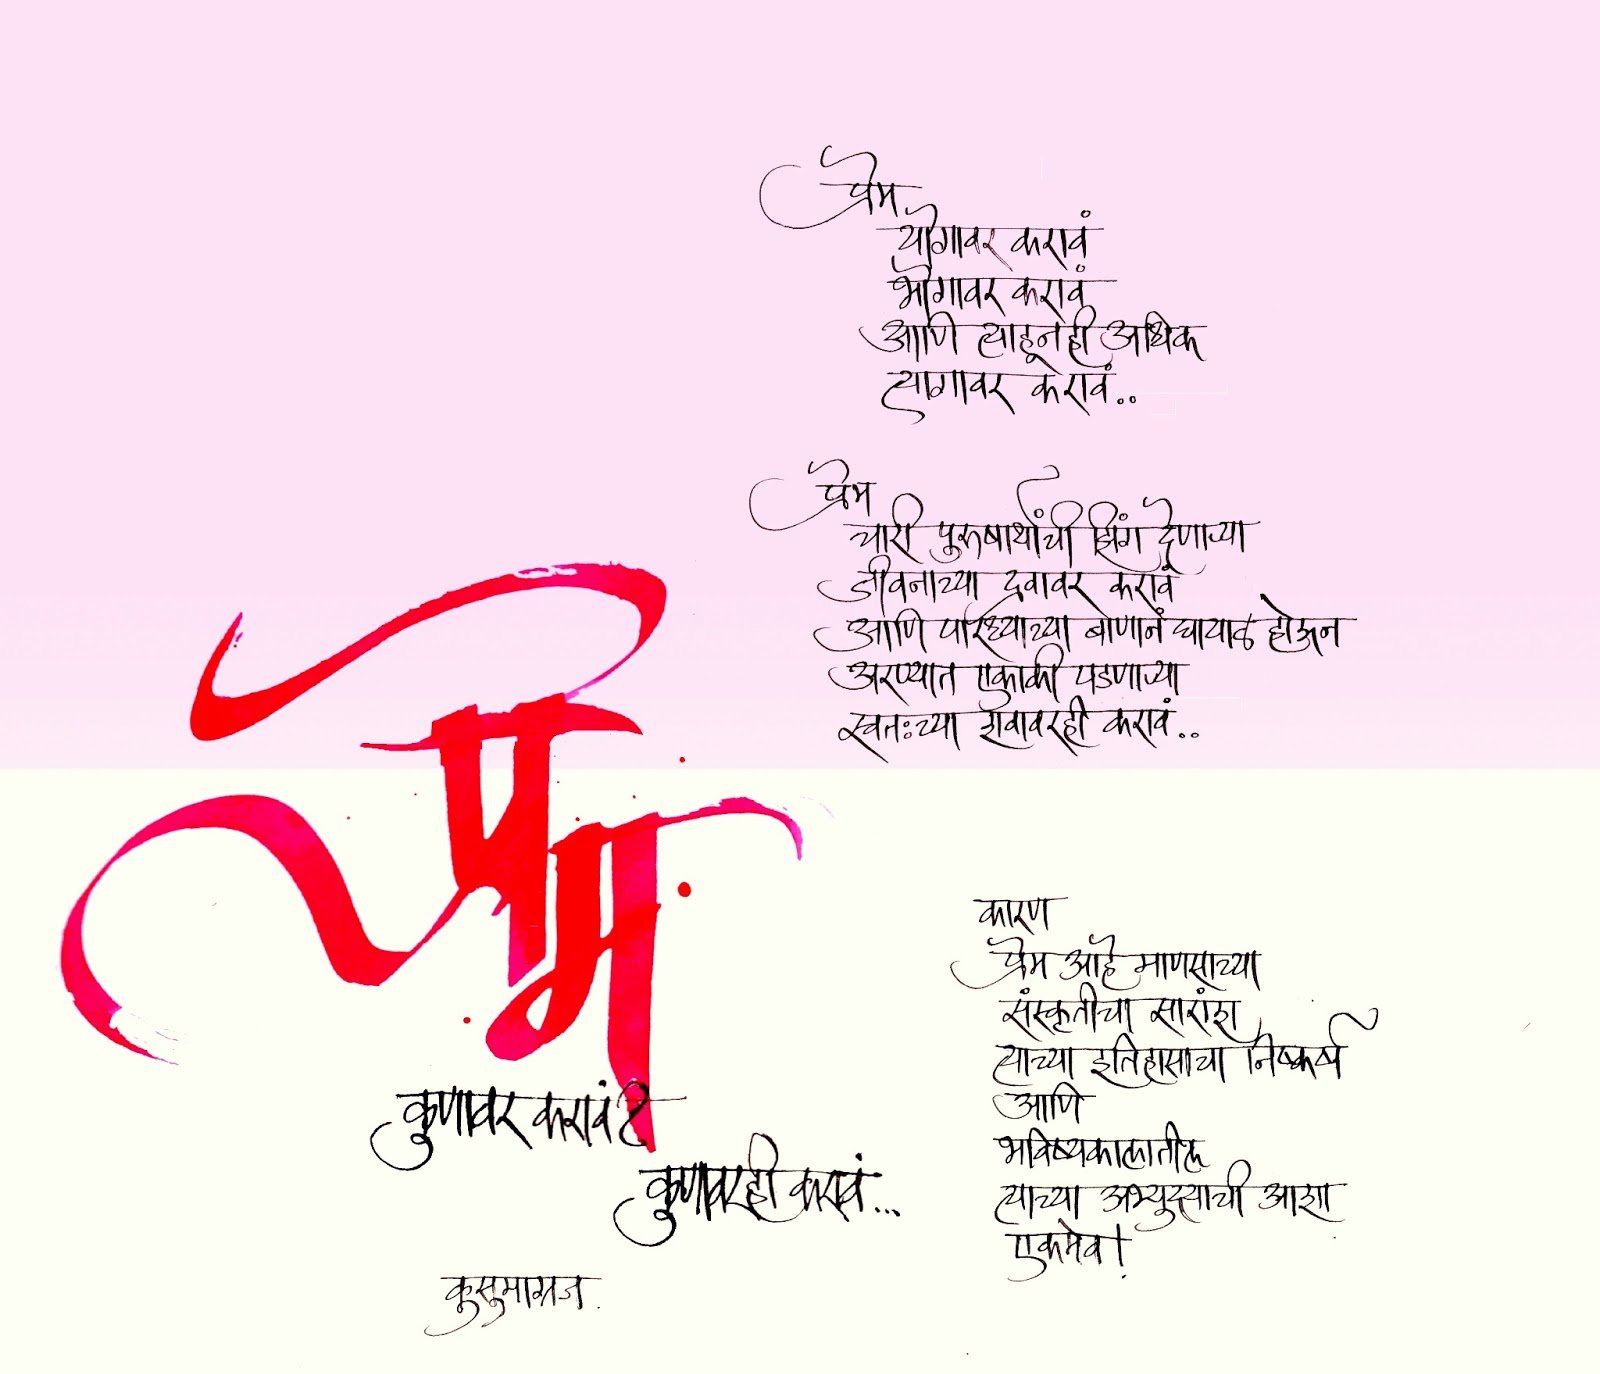 प्रेम
कुणावर करावं?
कुणावरही करावं...
कुसुमाग्रज.
प्रेम
योगावर करावं
भोगावर करावं
आणि त्याहूनही अधिक
त्यागावर करावं..
प्रेम
चारी पुरुषार्थांची झिंग देणाऱ्या
जीवनाच्या द्रवावर करावं
आणि पारध्याच्या बाणानं घायाळ होऊन
अरण्यात एकाकी पडणाऱ्या
स्वतःच्या शवावरही करावं..
कारण
प्रेम आहे माणसाच्या
संस्कृतीचा सारांश
त्याच्या इतिहासाचा निष्कर्ष
आणि
भविष्यकाळातील
त्याच्या अभ्युदयाची आशा
एकमेव!